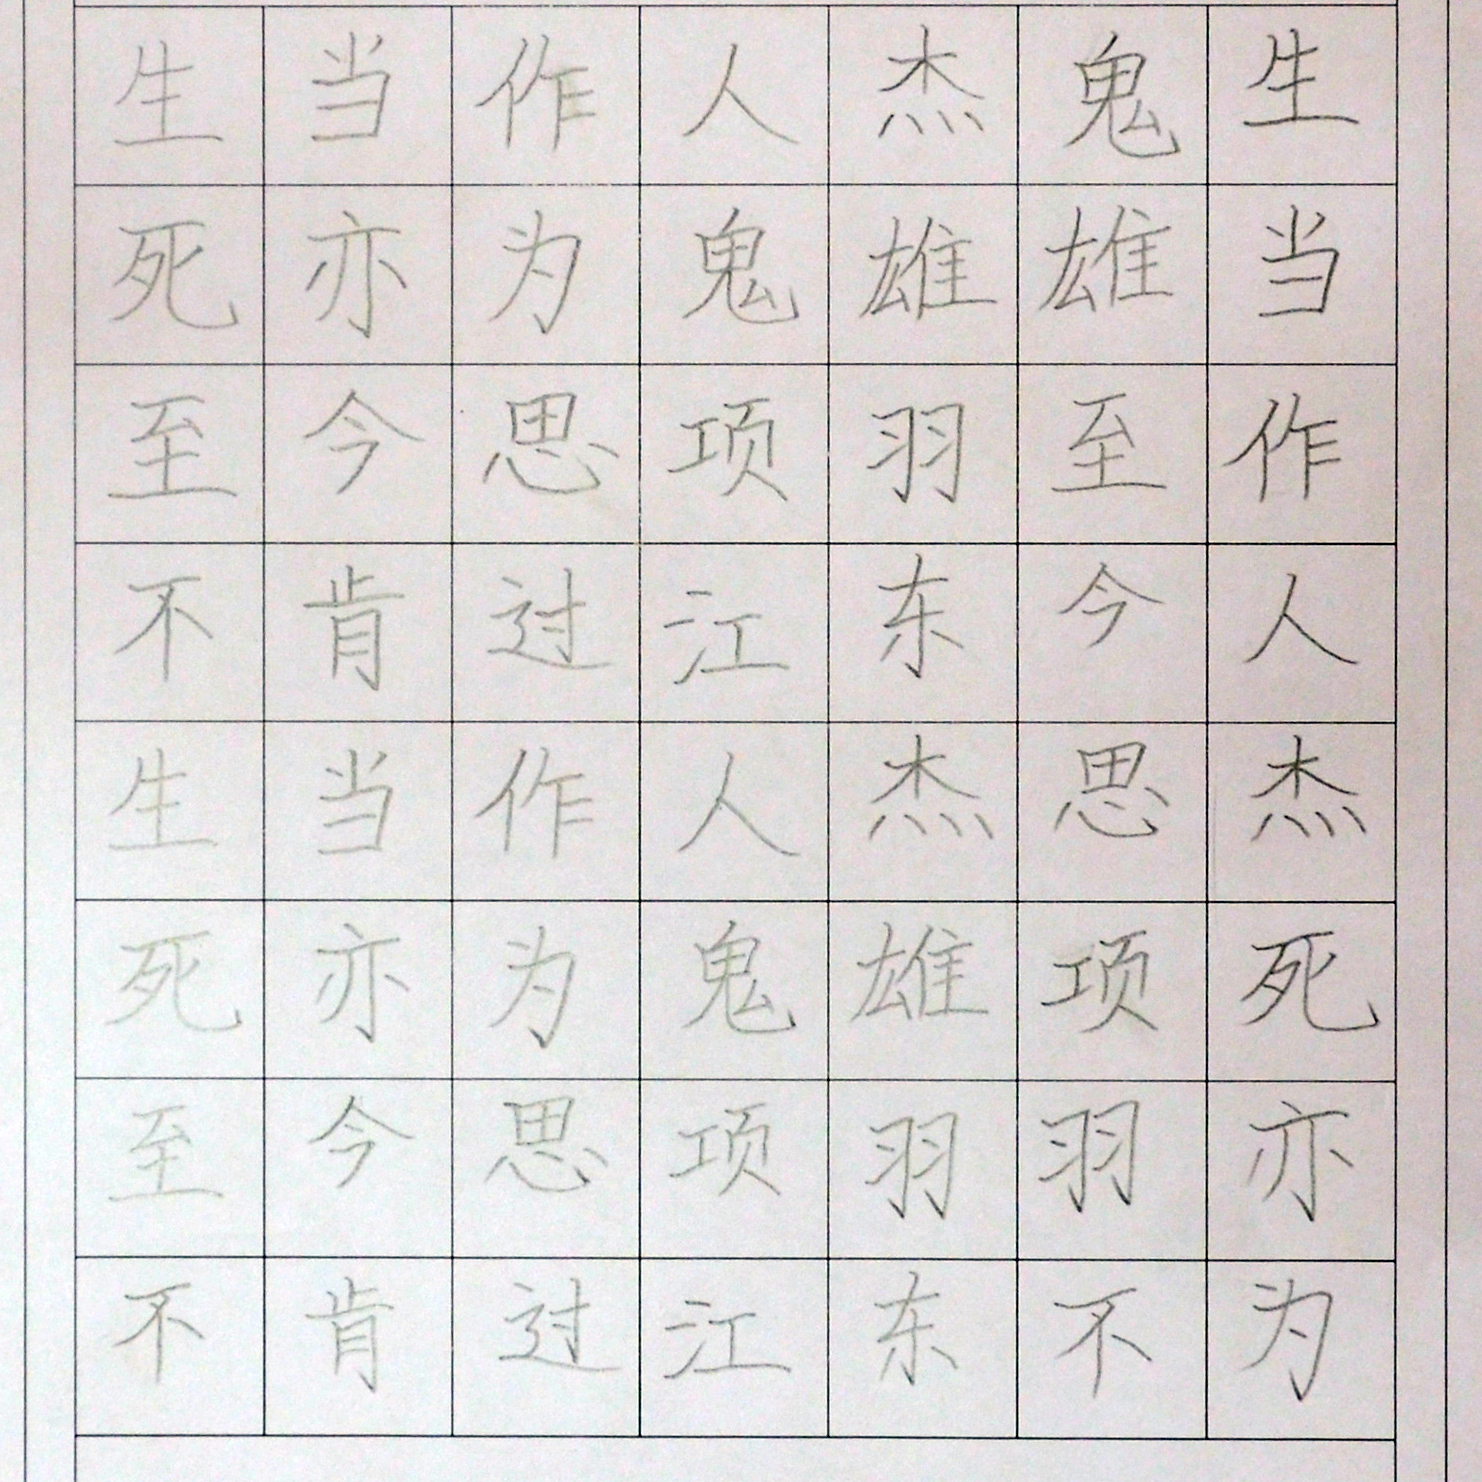 生当作人杰鬼生
死亦为鬼雄雄当
至今思项羽至作
不肯过江东今人
生当作人杰思杰
死亦为鬼雄项死
至今思项羽羽亦
不肯过江东不为